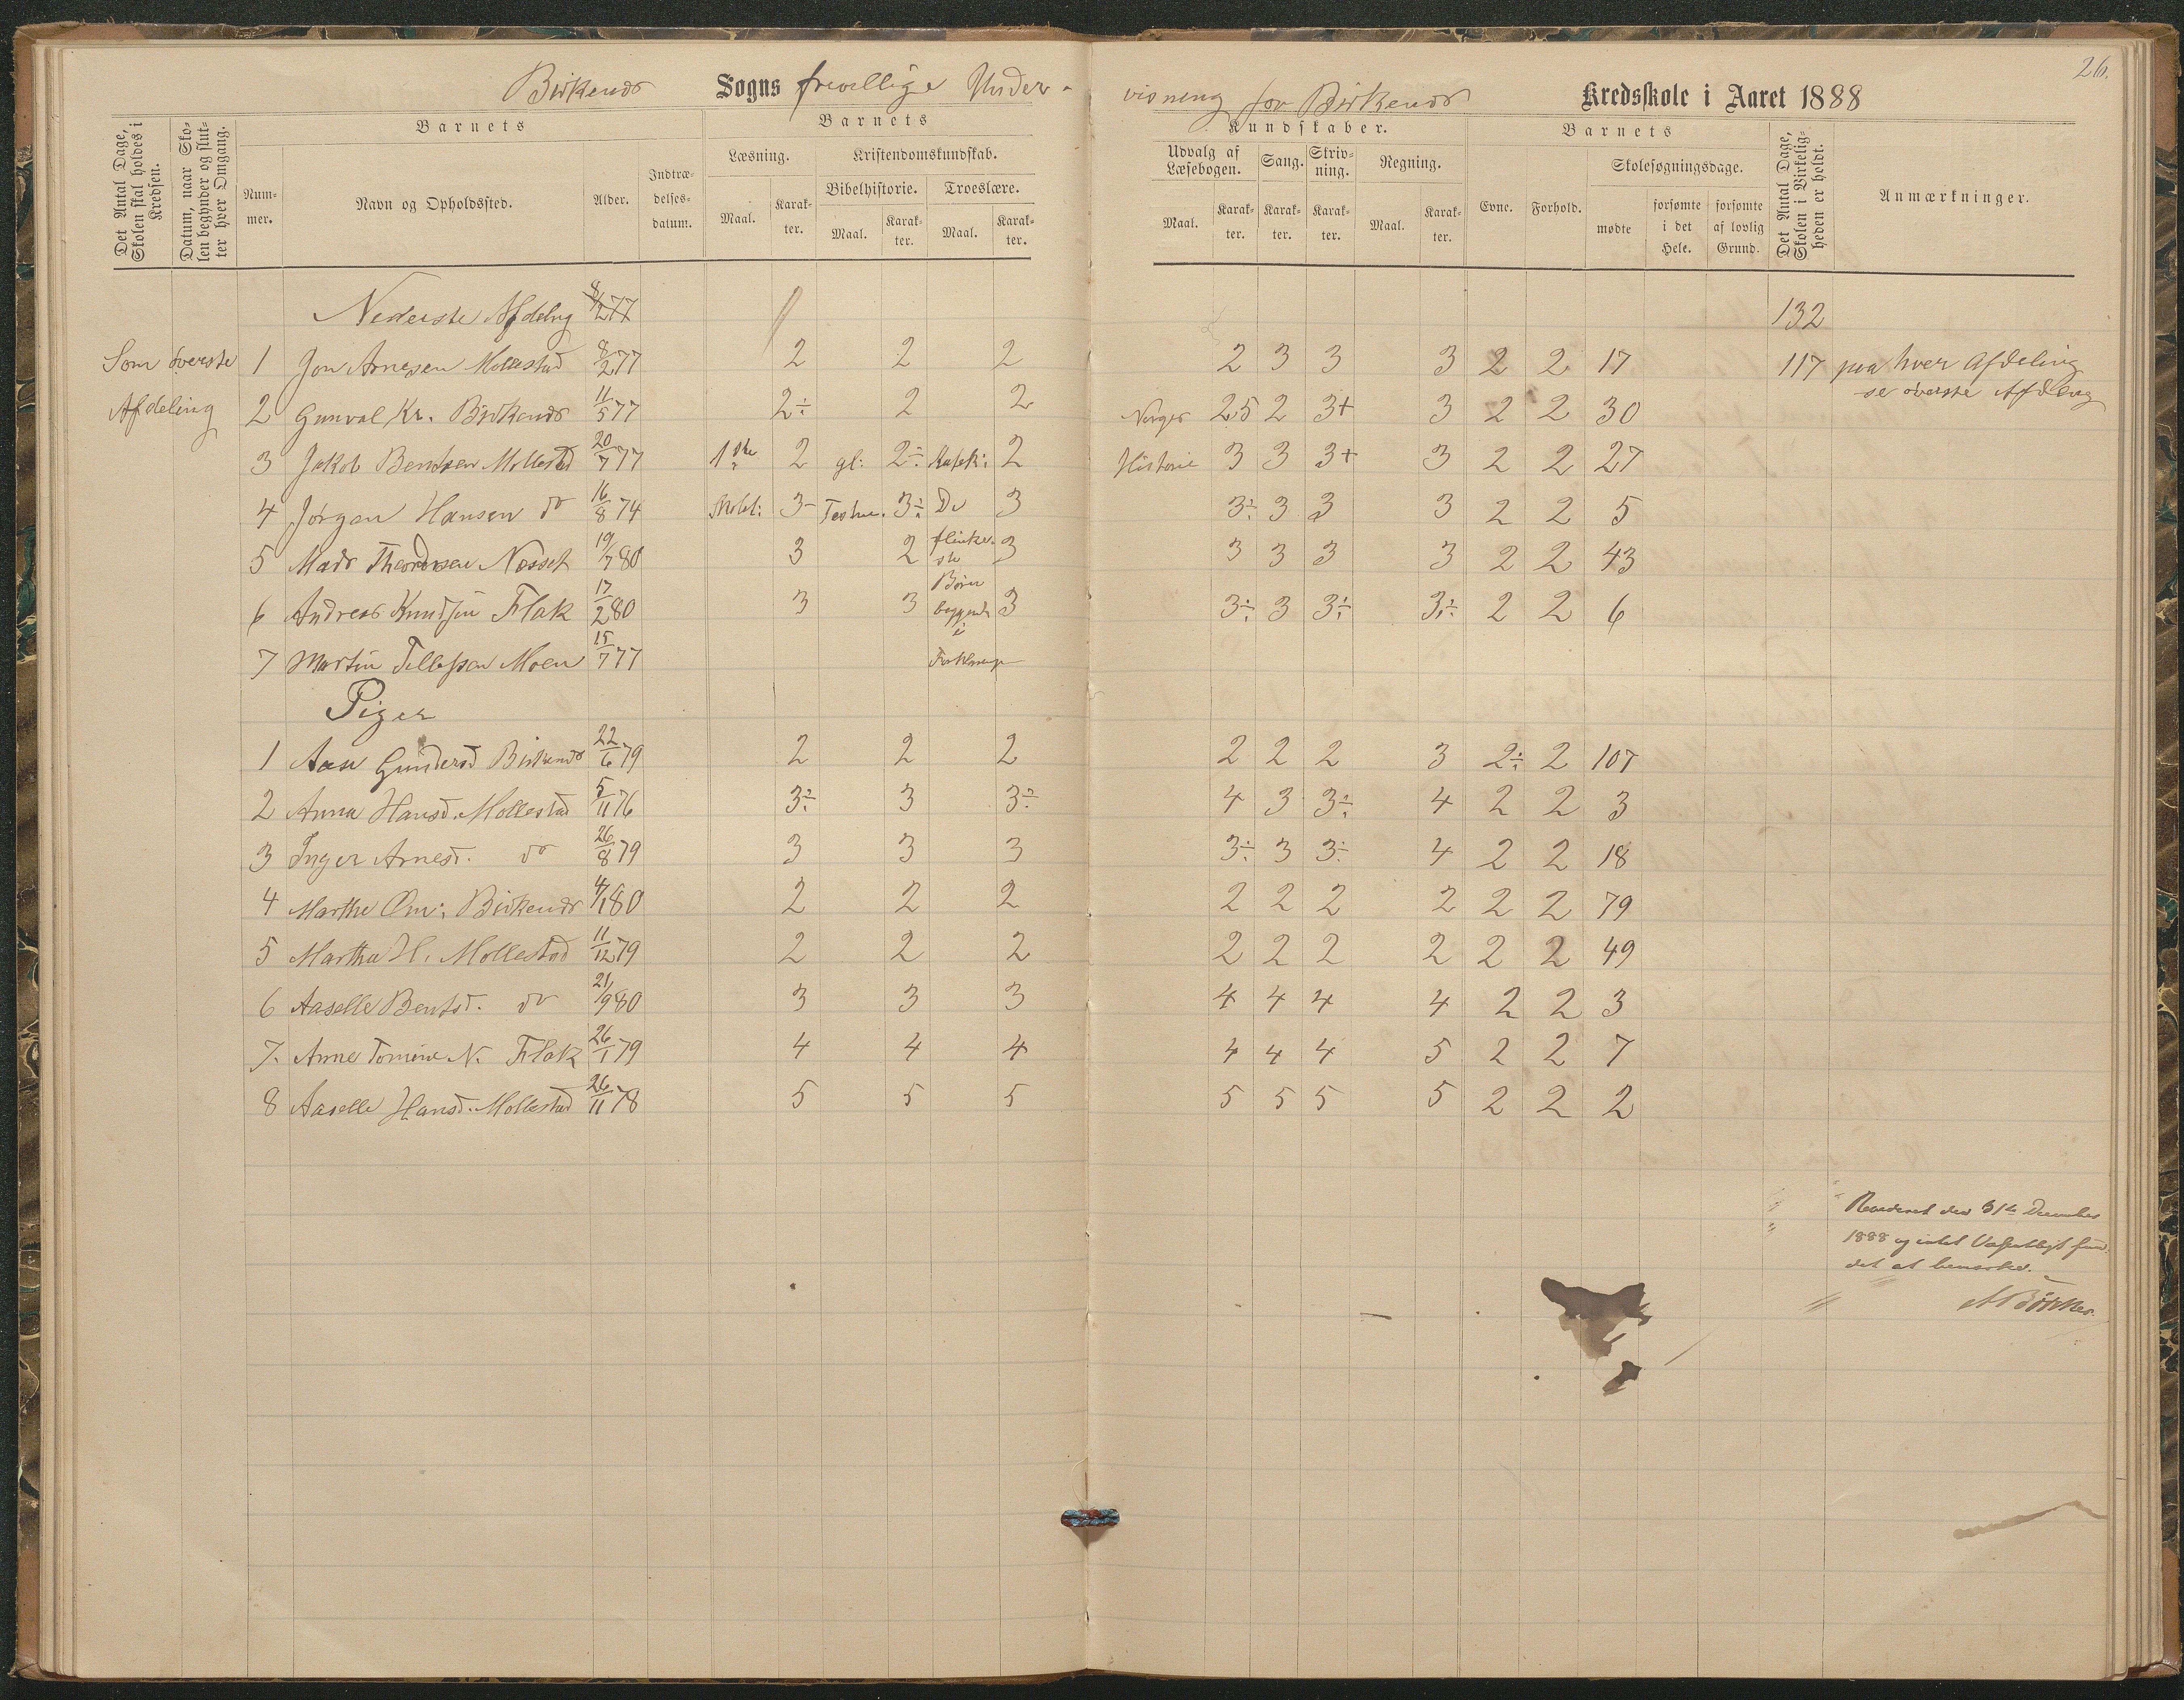 26.
Birkenes Sogns frivillige Under-visning for Birkenes Kredsskole i Aaret 1888
Det Antal Dage, Skolen skal holdes i Kredsen.
Datum, naar Skolen begynder og slutter hver Omgang.
Barnets
Nummer.
Navn og Opholdssted.
Alder.
Indtrædelsesdatum.
Barnets Kundskaber.
Læsning.
Maal.
Karakter.
Kristendomskundskab.
Bibelhistorie.
Maal.
Karakter.
Troeslære.
Maal.
Karakter.
Udvalg af Læsebogen.
Maal.
Karakter.
Sang.
Karakter.
Skrivning.
Karakter.
Regning.
Maal.
Karakter.
Barnets
Evne.
Forhold.
Skolesøgningsdage.
mødte
forsømte i det Hele.
forsømte af lovlig Grund.
Det Antal Dage, Skolen i Virkeligheden er holdt.
Anmærkninger.
Nederste Afdelng 8/2 77 132
Som øverste 1 Jon Arnesen Mollestad 8/2 77 2 2 2 2 3 3 3 2 2 17 117 paa hver Afdeling
se øverste Afdeling
Afdeling 2 Gunval Kr. Birkenes 11/5 77 2÷ 2 2 Norges 2,5 2 3+ 3 2 2 30
3 Jakob Bentsen Mollestad 20/7 77 1ste 2 gl: 2÷ Katek: 2 Historie 3 3 3+ 3 2 2 27
4 Jørgen Hansen do 16/8 74 3- 3÷ De 3 3÷ 3 3 3 2 2 5
5 Mads Theodorsen Næsset 19/7 80 3 2 flinkeste 3 3 3 3 3 2 2 43
6 Andreas Knudsen Flak 17/2 80 3 3 Børn begyndt i 3 3÷ 3 3÷ 3÷ 2 2 6
7 Martin Tellefsen Moen 15/7 77
Piger
1 Aase Gundersd Birkenes 22/6 79 2 2 2 2 2 2 3 2÷ 2 107
2 Anna Hansd. Mollestad 5/11 76 3÷ 3 3÷ 4 3 3÷ 4 2 2 3
3 Inger Arnesd. do 26/8 79 3 3 3 3÷ 3 3÷ 4 2 2 18
4 Marthe Om: Birkenes 4/1 80 2 2 2 2 2 2 2 2 2 79
5 Martha H. Mollestad 11/12 79 2 2 2 2 2 2 2 2 2 49
6 Aaselle Bentsd. do 21/9 80 3 3 3 4 4 4 4 2 2 3
7. Anne Tomine N. Flak 26/1 79 4 4 4 4 4 4 5 2 2 7
8 Aaselle Hansd. Mollestad 26/11 78 5 5 5 5 5 5 5 2 2 2
Revideret den 31te December
1888 og intet Væsentligt fun-
det at bemærke.